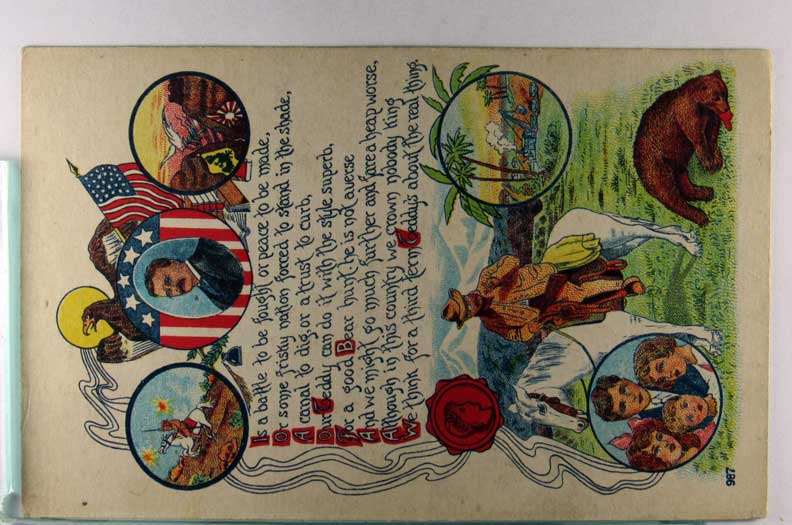 Is a battle to be fought or peace to be made,
Or some frisky nation forced to stand in the shade,
A canal to dig, or a trust to curb,
Our Teddy can do it with the style superb,
For a good Bear hunt he is not averse
And we might go much further and fare a heap worse,
Although in this country we crown nobody king
We think for a third term Teddy's about the real thing.
987